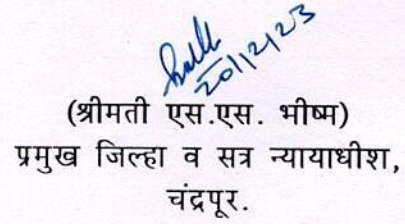 20/12/23
(श्रीमती एस.एस. भीष्म)
प्रमुख जिल्हा व सत्र न्यायाधीश,
चंद्रपूर.